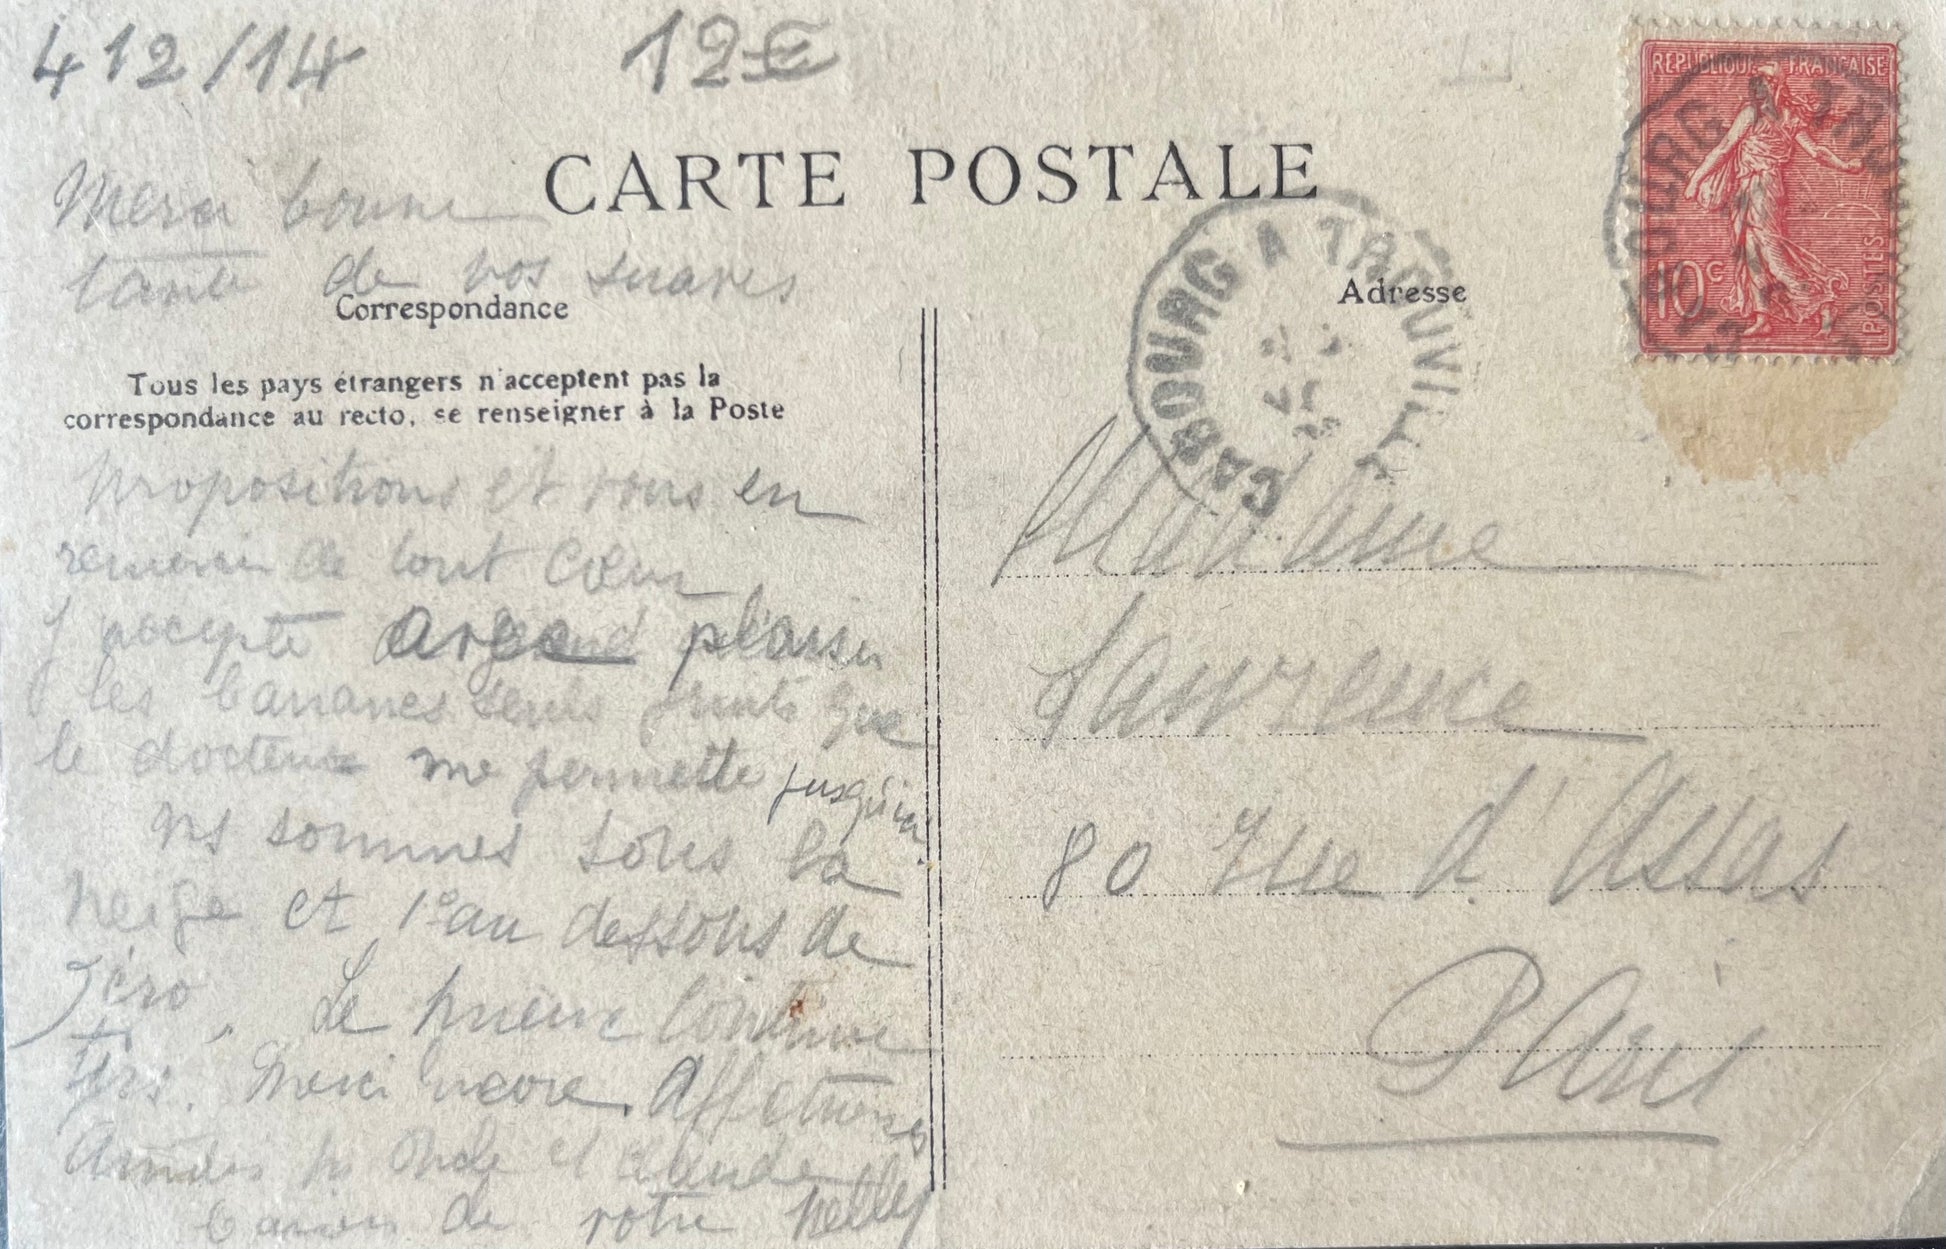 412/14
12€
CARTE POSTALE
RÉPUBLIQUE FRANÇAISE
10c
POSTES
CABOURG A TROUVILLE
Correspondance
Adresse
Tous les pays étrangers n'acceptent pas la
correspondance au recto, se renseigner à la Poste
Merci bonne
tante de vos suaves
propositions et vous en
remercie de tout cœur
J'accepte avec plaisir
les bananes seuls fruits que
le docteur me permette jusqu'ici.
Ns sommes sous la
neige et 1° au dessous de
zéro. Le mieux continue
tjrs. Merci encore. Affectueuses
Amitiés pr Oncle et
baisers de votre Nelly
Madame
Lawrence
80 rue d'Assas
Paris